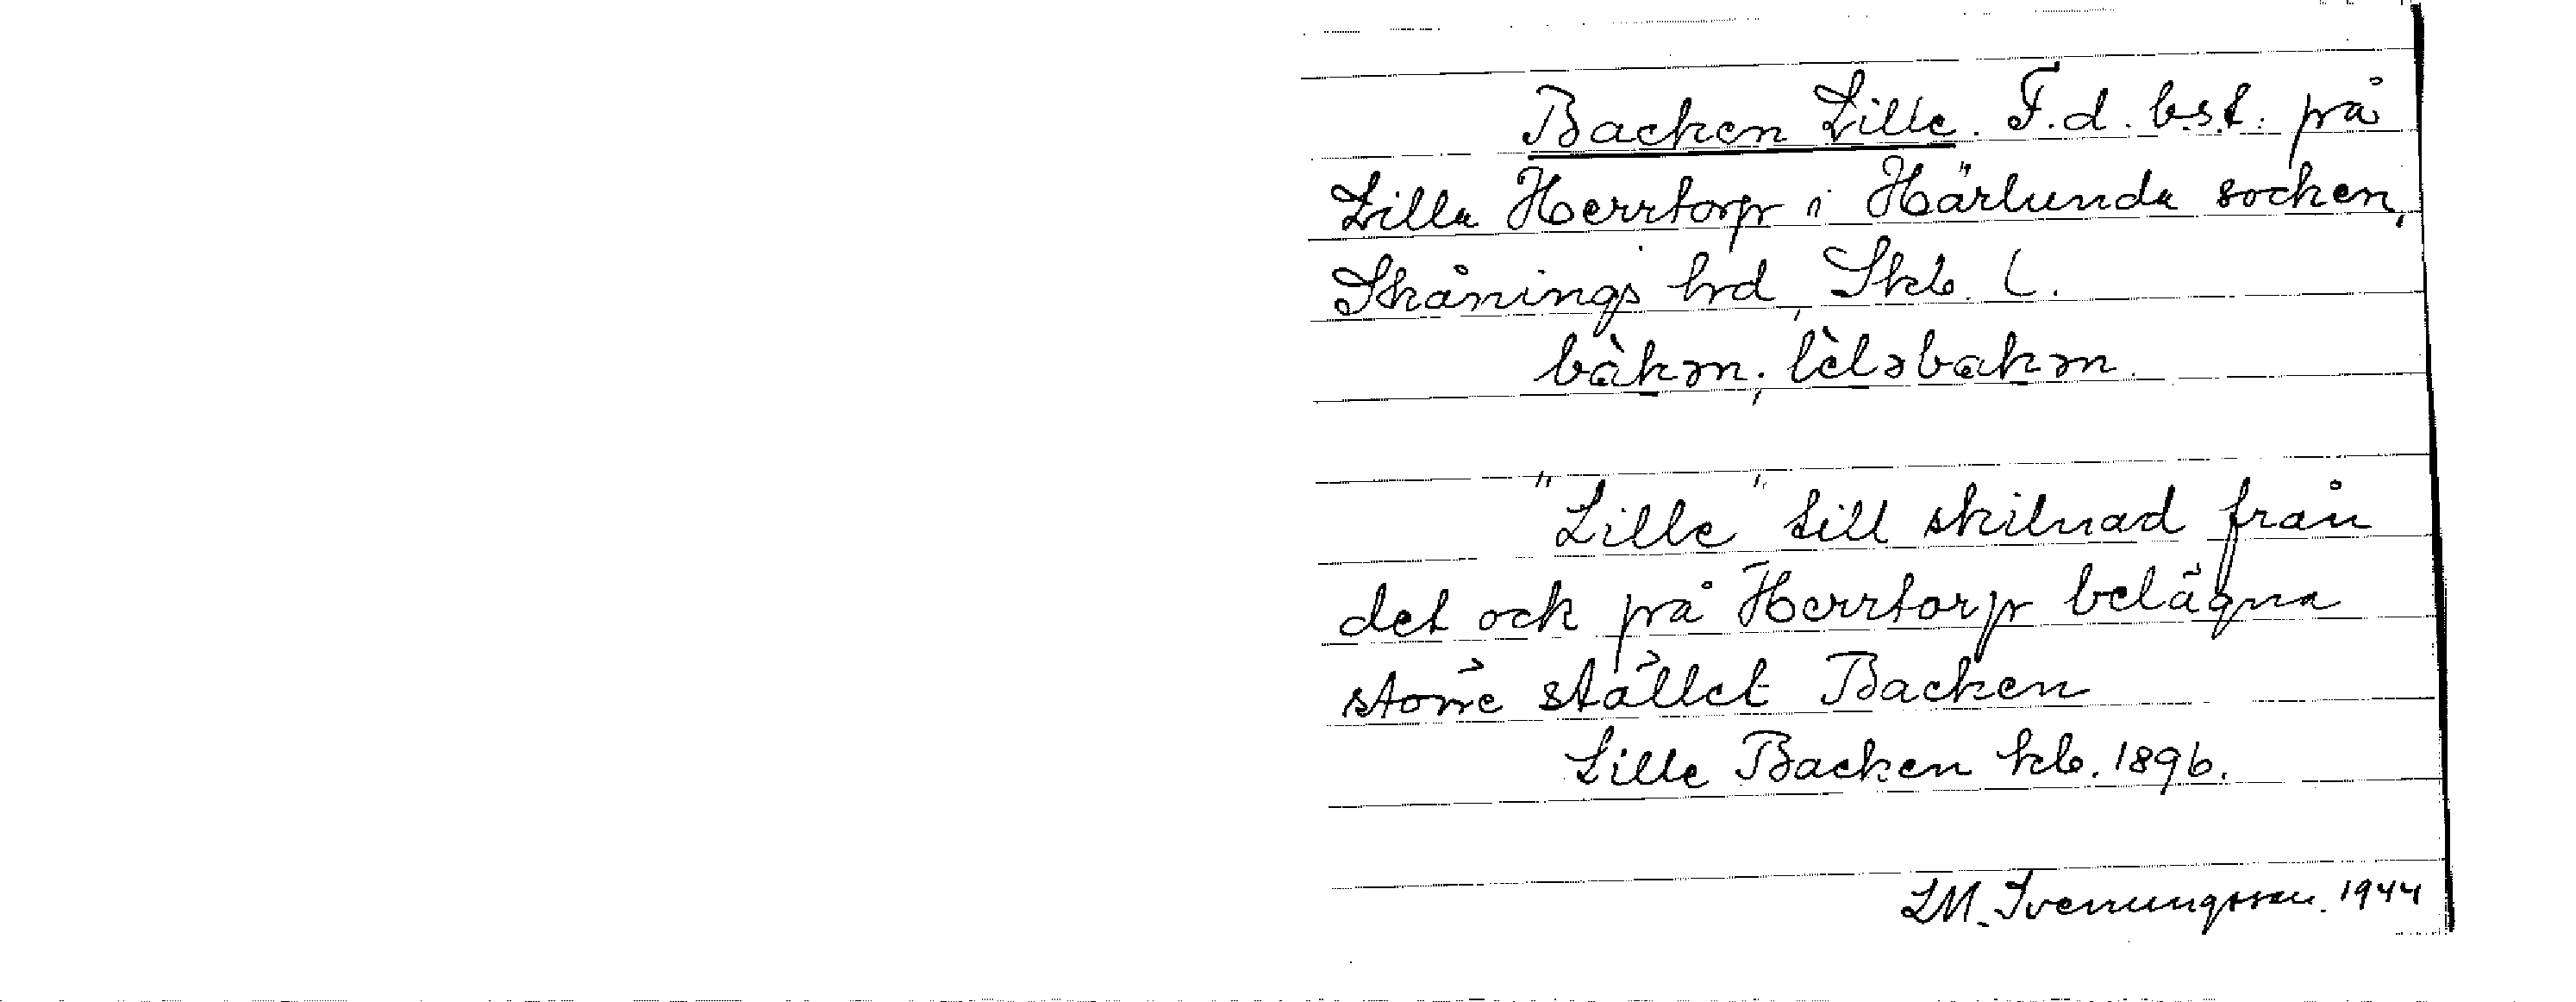 Backen Lille. F.d. bst. på
Lilla Herrtorp i Härlunda socken,
Skånings hrd, Skb. L.
bàkən; lèləbakən.
"Lille" till skilnad från
det ock på Herrtorp belägna
större stället Backen
Lille Backen kb. 1896.
LM. Svenungsson. 1944